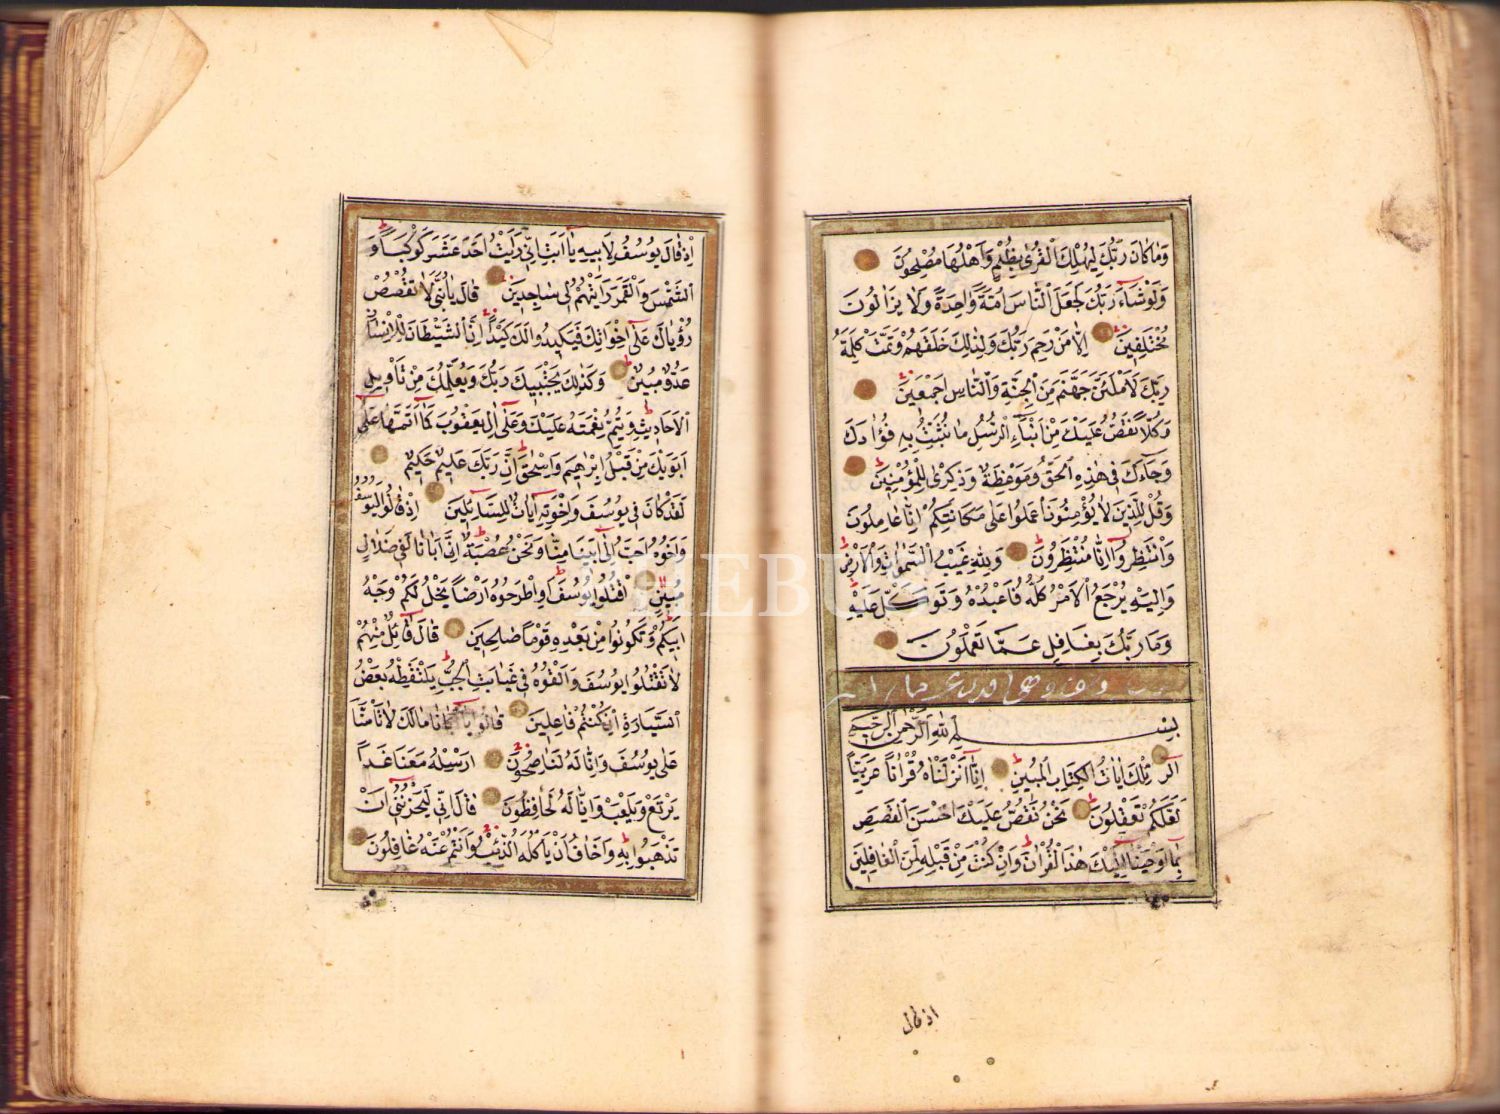 وَمَا كَانَ رَبُّكَ لِيُهْلِكَ الْقُرٰى بِظُلْمٍ وَاَهْلُهَا مُصْلِحُونَ
وَلَوْ شَاۤءَ رَبُّكَ لَجَعَلَ النَّاسَ اُمَّةً وَاحِدَةً وَلَا يَزَالُونَ
مُخْتَلِفِينَ اِلَّا مَنْ رَحِمَ رَبُّكَ وَلِذٰلِكَ خَلَقَهُمْ وَتَمَّتْ كَلِمَةُ
رَبِّكَ لَاَمْلَئَنَّ جَهَنَّمَ مِنَ الْجِنَّةِ وَالنَّاسِ اَجْمَعِينَ
وَكُلًّا نَقُصُّ عَلَيْكَ مِنْ اَنْبَاۤءِ الرُّسُلِ مَا نُثَبِّتُ بِهِ فُؤَادَكَ
وَجَاۤءَكَ فِى هٰذِهِ الْحَقُّ وَمَوْعِظَةٌ وَذِكْرٰى لِلْمُؤْمِنِينَ
وَقُلْ لِلَّذِينَ لَا يُؤْمِنُونَ اعْمَلُوا عَلٰى مَكَانَتِكُمْ اِنَّا عَامِلُونَ
وَانْتَظِرُوا اِنَّا مُنْتَظِرُونَ وَلِلّٰهِ غَيْبُ السَّمٰوَاتِ وَالْاَرْضِ
وَاِلَيْهِ يُرْجَعُ الْاَمْرُ كُلُّهُ فَاعْبُدْهُ وَتَوَكَّلْ عَلَيْهِ
وَمَا رَبُّكَ بِغَافِلٍ عَمَّا تَعْمَلُونَ
بِسْمِ اللهِ الرَّحْمٰنِ الرَّحِيمِ
الۤرٰ تِلْكَ اٰيَاتُ الْكِتَابِ الْمُبِينِ اِنَّا اَنْزَلْنَاهُ قُرْاٰنًا عَرَبِيًّا
لَعَلَّكُمْ تَعْقِلُونَ نَحْنُ نَقُصُّ عَلَيْكَ اَحْسَنَ الْقَصَصِ
بِمَا اَوْحَيْنَا اِلَيْكَ هٰذَا الْقُرْاٰنَ وَاِنْ كُنْتَ مِنْ قَبْلِهِ لَمِنَ الْغَافِلِينَ
اذ قال
اِذْ قَالَ يُوسُفُ لِاَبِيهِ يَا اَبَتِ اِنِّى رَاَيْتُ اَحَدَ عَشَرَ كَوْكَبًا وَ
الشَّمْسَ وَالْقَمَرَ رَاَيْتُهُمْ لِى سَاجِدِينَ قَالَ يَا بُنَىَّ لَا تَقْصُصْ
رُؤْيَاكَ عَلٰى اِخْوَتِكَ فَيَكِيدُوا لَكَ كَيْدًا اِنَّ الشَّيْطَانَ لِلْاِنْسَانِ
عَدُوٌّ مُبِينٌ وَكَذٰلِكَ يَجْتَبِيكَ رَبُّكَ وَيُعَلِّمُكَ مِنْ تَاْوِيلِ
الْاَحَادِيثِ وَيُتِمُّ نِعْمَتَهُ عَلَيْكَ وَعَلٰى اٰلِ يَعْقُوبَ كَمَا اَتَمَّهَا عَلٰى
اَبَوَيْكَ مِنْ قَبْلُ اِبْرٰهِيمَ وَاِسْحٰقَ اِنَّ رَبَّكَ عَلِيمٌ حَكِيمٌ
لَقَدْ كَانَ فِى يُوسُفَ وَاِخْوَتِهِ اٰيَاتٌ لِلسَّاۤئِلِينَ اِذْ قَالُوا لَيُوسُفُ
وَاَخُوهُ اَحَبُّ اِلٰى اَبِينَا مِنَّا وَنَحْنُ عُصْبَةٌ اِنَّ اَبَانَا لَفِى ضَلَالٍ
مُبِينٍ اقْتُلُوا يُوسُفَ اَوِ اطْرَحُوهُ اَرْضًا يَخْلُ لَكُمْ وَجْهُ
اَبِيكُمْ وَتَكُونُوا مِنْ بَعْدِهِ قَوْمًا صَالِحِينَ قَالَ قَاۤئِلٌ مِنْهُمْ
لَا تَقْتُلُوا يُوسُفَ وَاَلْقُوهُ فِى غَيَابَتِ الْجُبِّ يَلْتَقِطْهُ بَعْضُ
السَّيَّارَةِ اِنْ كُنْتُمْ فَاعِلِينَ قَالُوا يَا اَبَانَا مَا لَكَ لَا تَاْمَنَّا
عَلٰى يُوسُفَ وَاِنَّا لَهُ لَنَاصِحُونَ اَرْسِلْهُ مَعَنَا غَدًا
يَرْتَعْ وَيَلْعَبْ وَاِنَّا لَهُ لَحَافِظُونَ قَالَ اِنِّى لَيَحْزُنُنِى اَنْ
تَذْهَبُوا بِهِ وَاَخَافُ اَنْ يَاْكُلَهُ الذِّئْبُ وَاَنْتُمْ عَنْهُ غَافِلُونَ